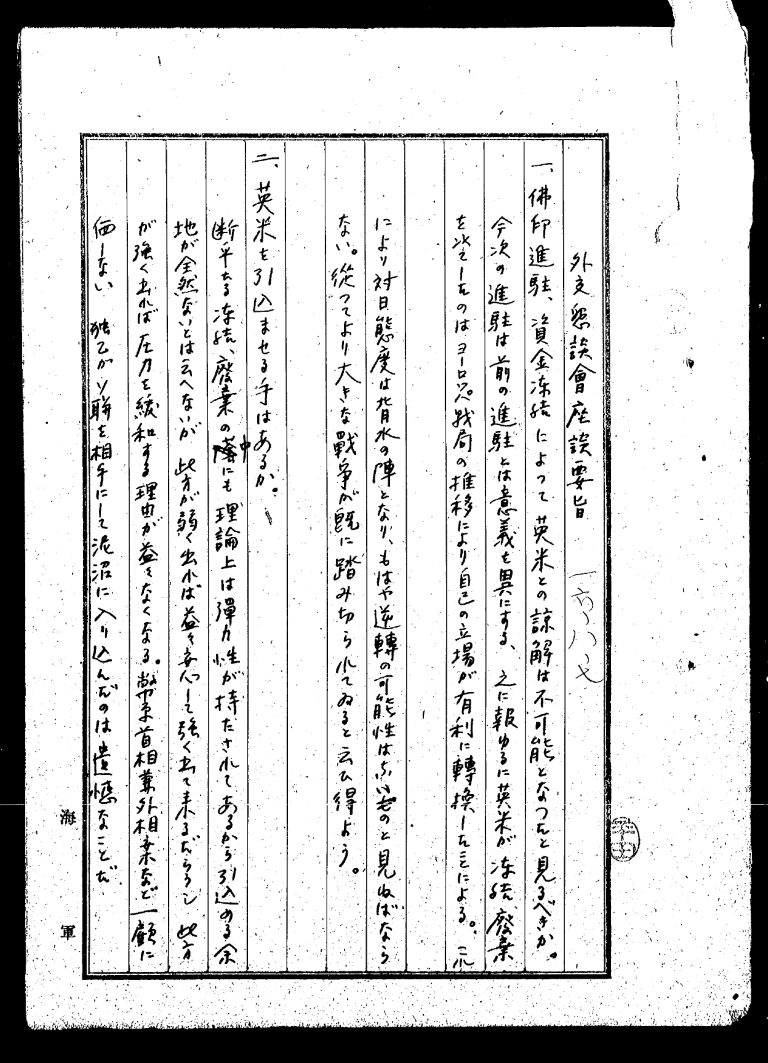 外交懇談會座談要旨 一六、八、七
一、佛印進駐、資金凍結によつて英米との諒解は不可能となつたと見るべきか。
今次の進駐は前の進駐とは意義を異にする、之に報ゆるに英米が凍結廢棄
を以てしたのはヨーロッパ戰局の推移により自己の立場が有利に轉換したことによる。これ
により対日態度は背水の陣となり、もはや逆轉の可能性はないものと見ねばなら
ない。從つてより大きな戰爭が既に踏み切られてゐると云ひ得よう。
二、英米を引込ませる手はあるか。
断乎たる凍結、廢棄の中にも理論上は彈力性が持たされてあるから引込める余
地が全然ないとは云へないが此方が弱く出れば益々安心して強く出て来るだらうし此方
が強く出れば圧力を緩和する理由が益々なくなる。首相兼外相案など一顧に
価しない 独乙がソ聯を相手にして泥沼に入り込んだのは遺憾なことだ
海軍